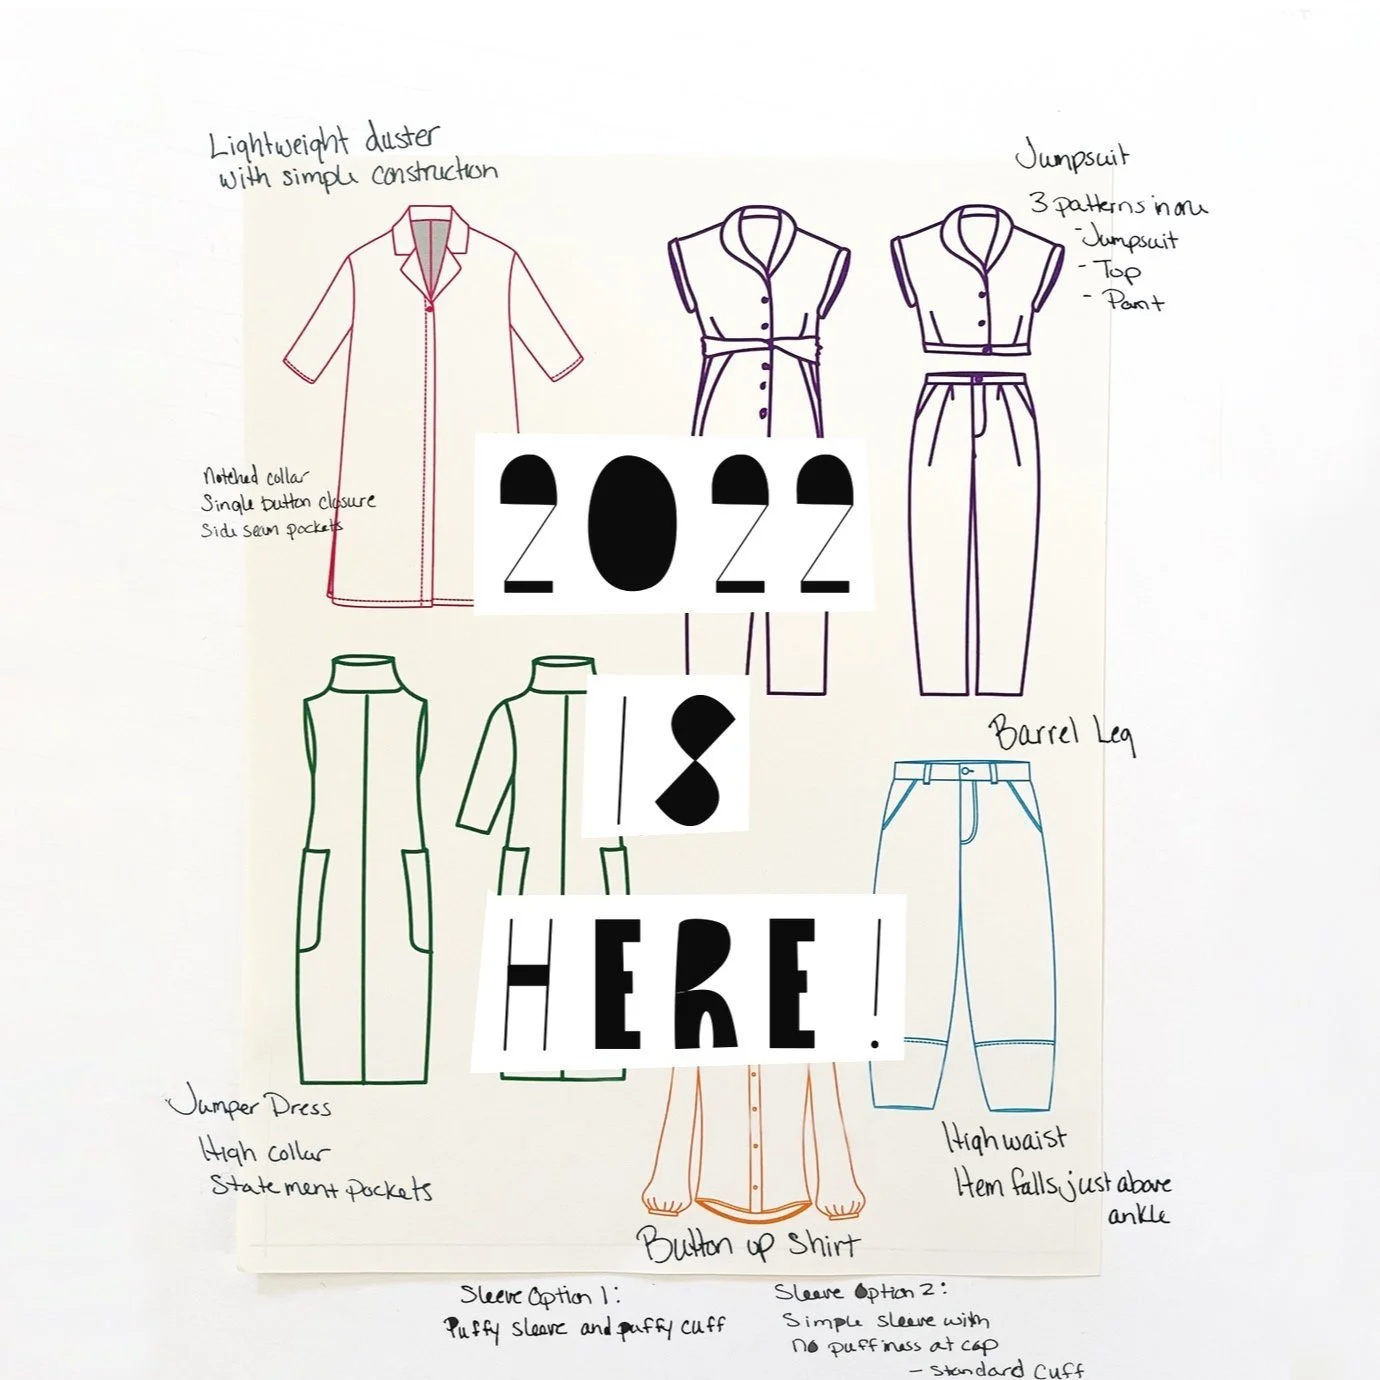 Lightweight duster
with simple construction
Jumpsuit
3 patterns in one
- Jumpsuit
- Top
- Pant
Notched collar
Single button closure
Side seam pockets
2022
IS
HERE!
Barrel Leg
Jumper Dress
High collar
Statement pockets
High waist
Hem falls just above
ankle
Button up Shirt
Sleeve Option 1:
Puffy sleeve and puffy cuff
Sleeve Option 2:
Simple sleeve with
no puffiness at cap
- Standard Cuff